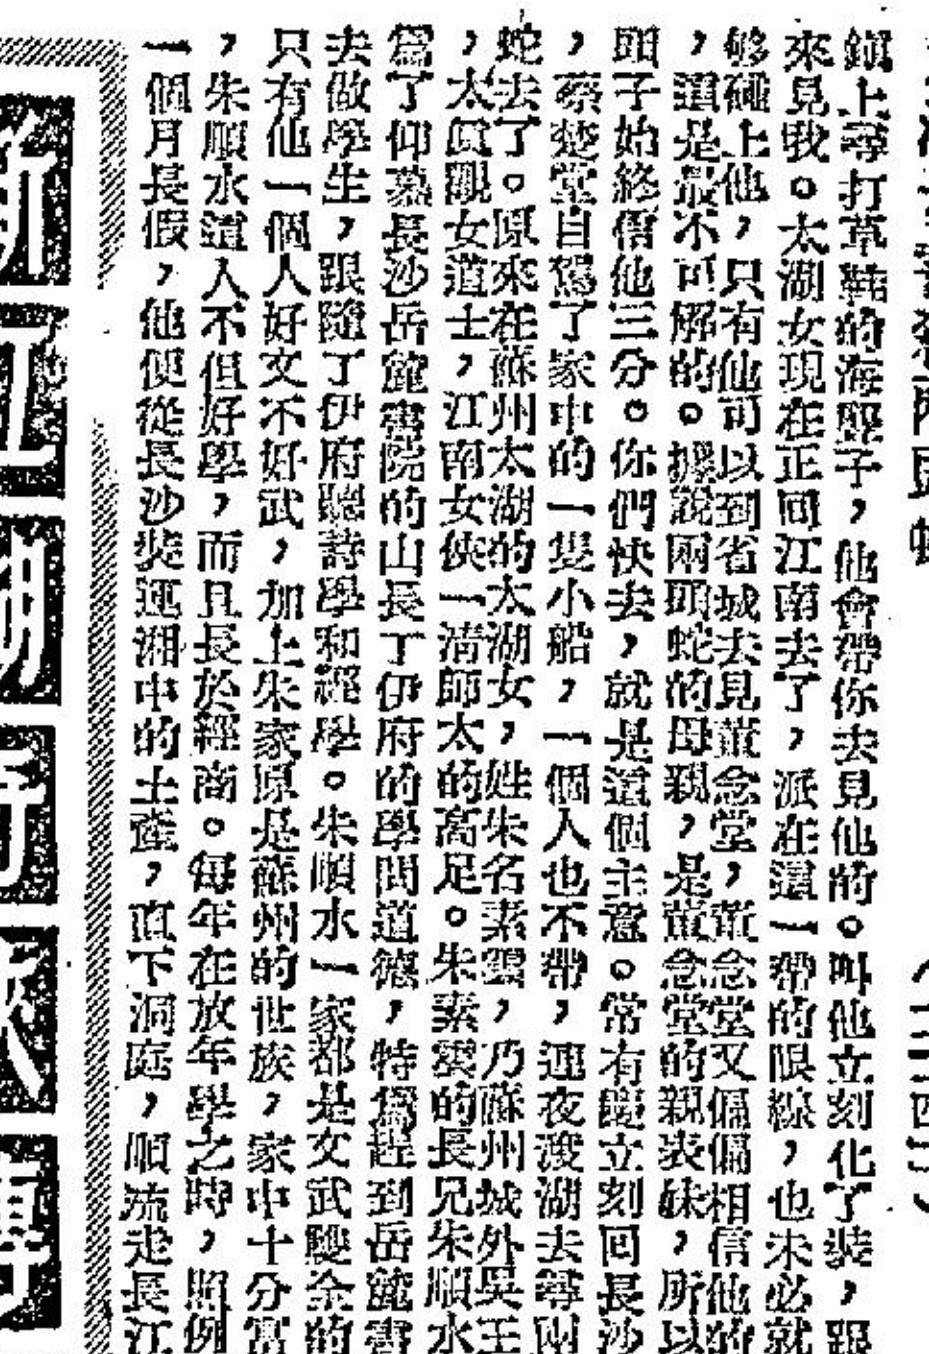 鎖上尋打草鞋的海堅子，他會帶你去見他的。叫他立刻化了裝，跟
來見我。太湖女現在正回江南去了，派在這一帶的眼線，也未必就
够碰上他，只有他可以到省城去見董念堂，董念堂又偏偏相信他的
，這是最不可解的。據說兩頭蛇的母親，是董念堂的親表妹，所以
頭子始終信他三分。你們快去，就是這個主意。常有慶立刻回長沙
，蔡楚堂自駕了家中的一隻小船，一個人也不帶，連夜渡湖去尋兩
蛇去了。原來在蘇州太湖的太湖女，姓朱名素雲，乃蘇州城外吳王
，太眞觀女道士，江南女俠一清師太的高足。朱素雲的長兄朱順水
爲了仰慕長沙岳麓書院的山長丁伊府的學問道德，特爲趕到岳麓書
去做學生，跟隨了伊府聽詩學和經學。朱順水一家都是文武雙全的
只有他一個人好文不好武，加上朱家原是蘇州的世族，家中十分富
，朱順水這人不但好學，而且長於經商。每年在放年學之時，照例
一個月長假，他便從長沙裝運湘中的土產，直下洞庭，順流走長江